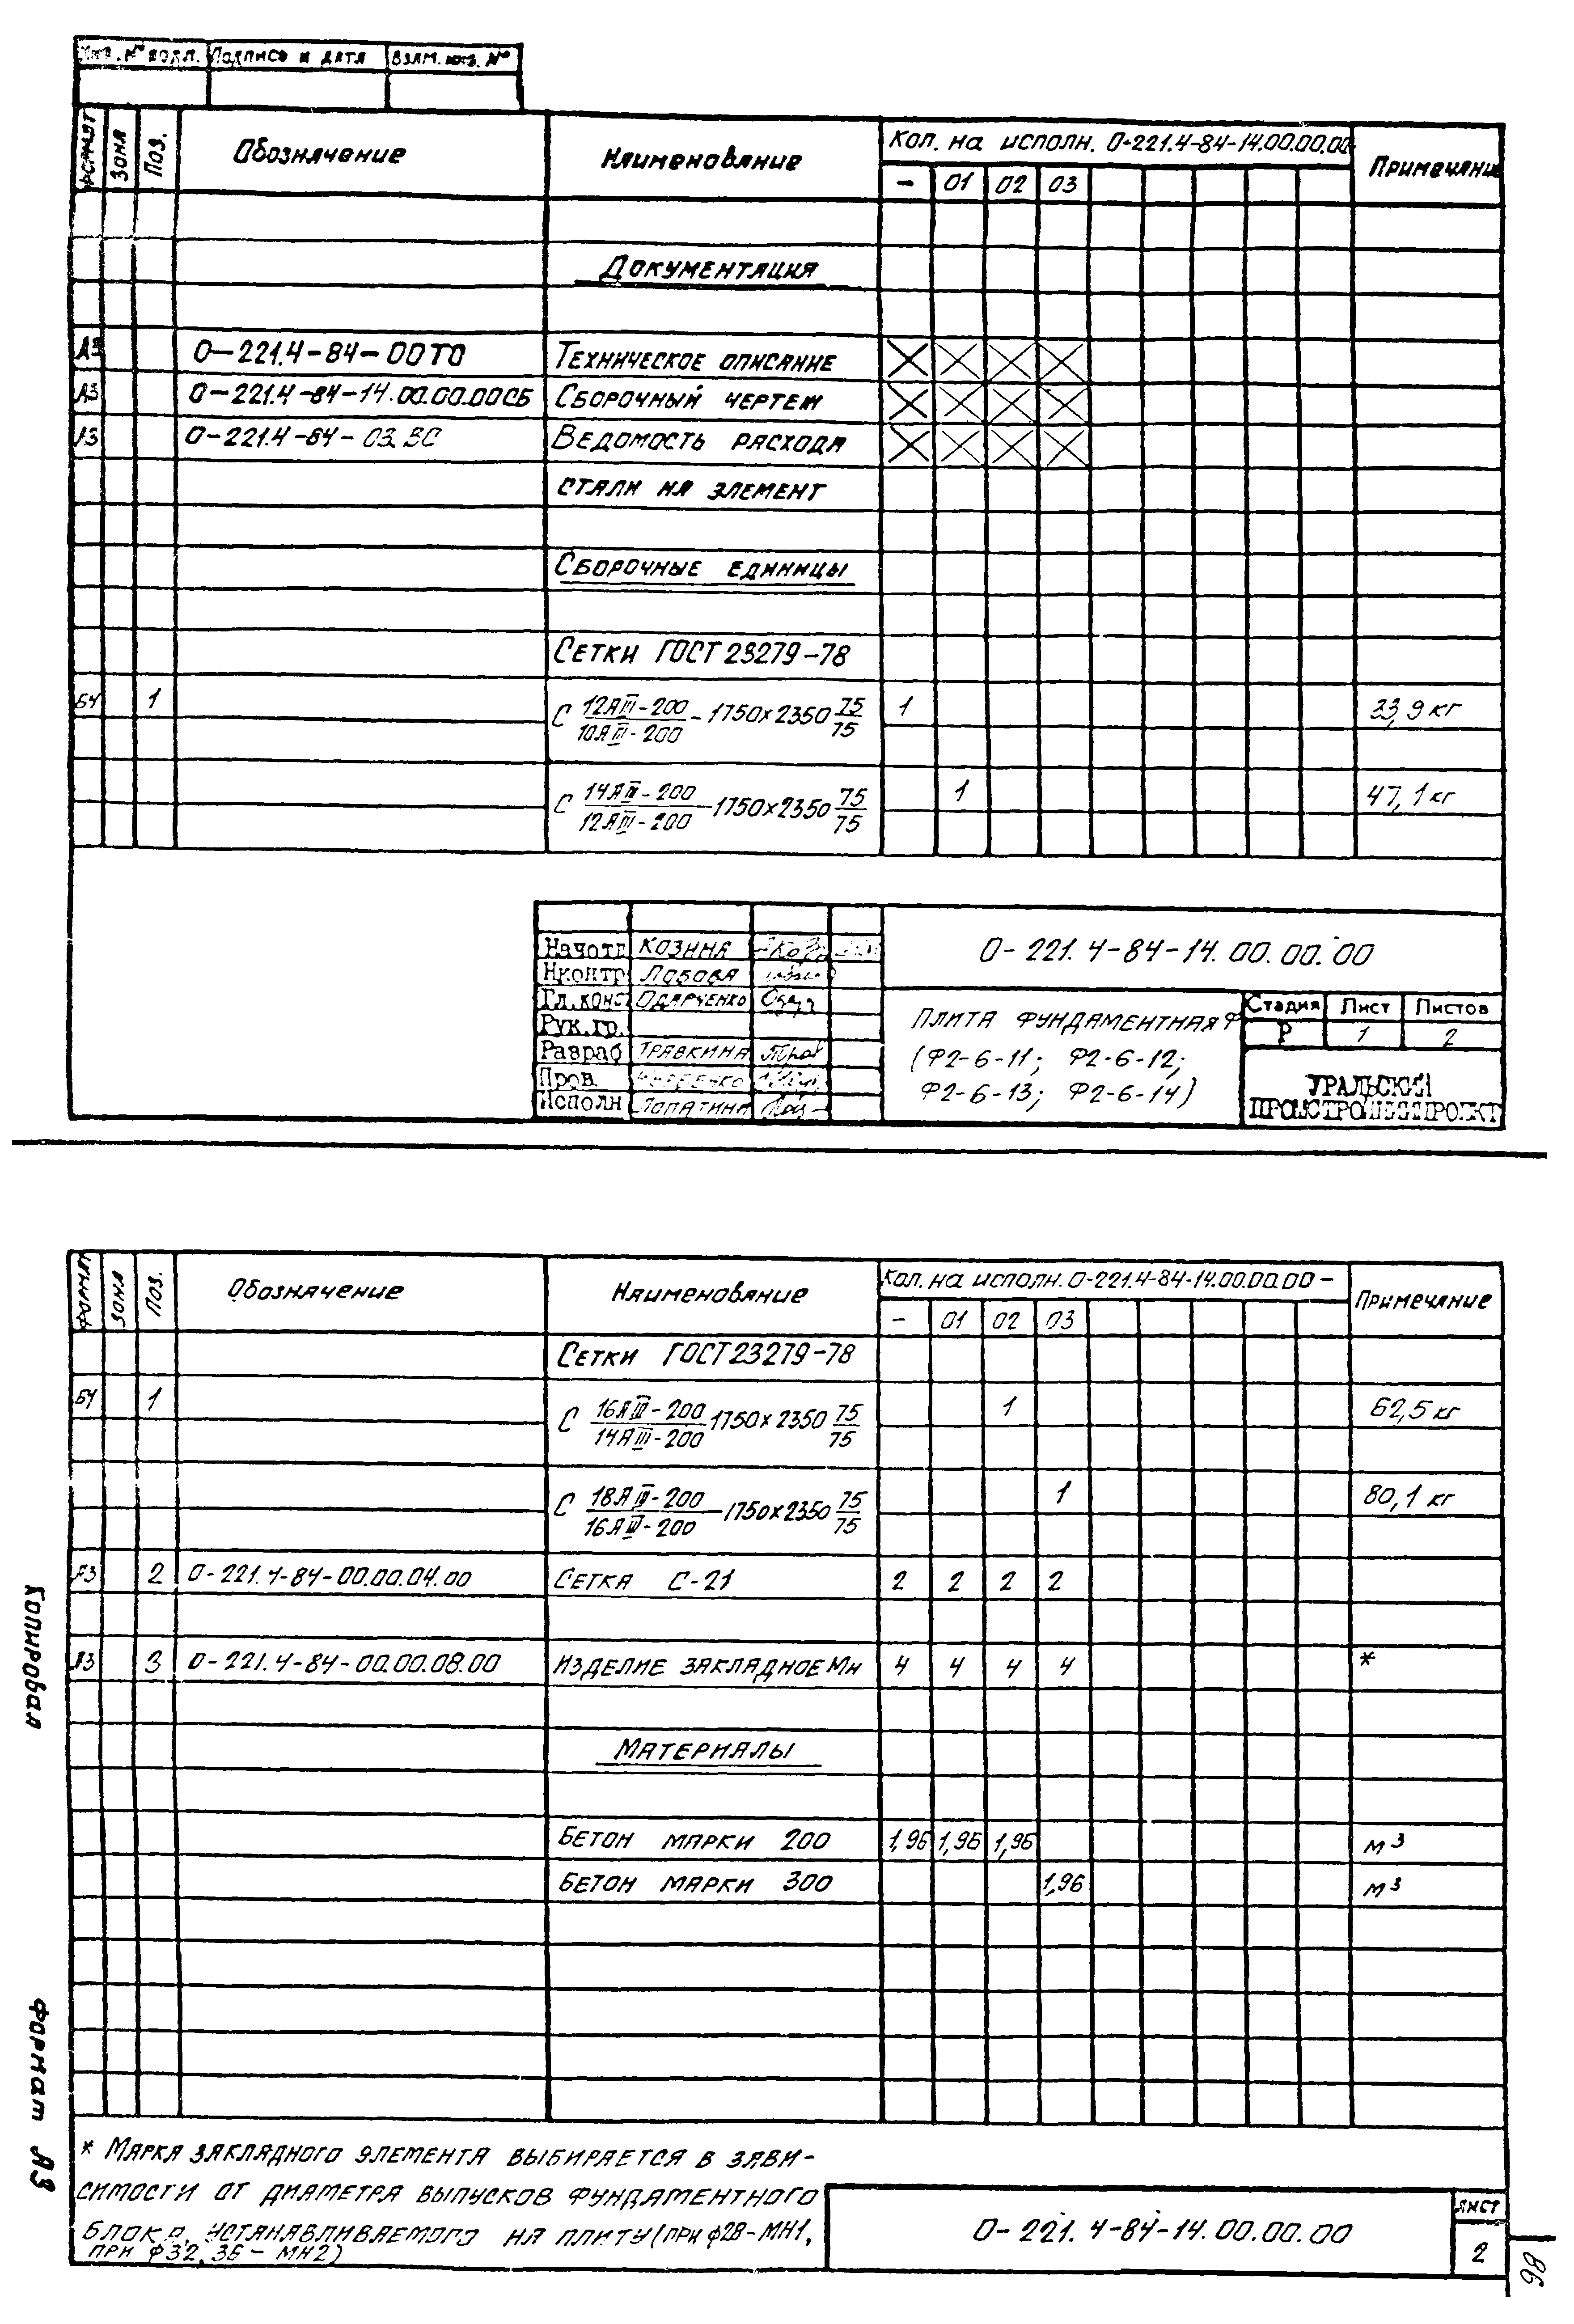 Инв. № подл. Подпись и дата Взам. инв. №
Формат Зона Поз. Обозначение Наименование Кол. на исполн. О-221.4-84-14.00.00.00- Примечание
– 01 02 03
Документация
А3 О-221.4-84-00ТО Техническое описание
А3 О-221.4-84-14.00.00.00СБ Сборочный чертеж
А3 О-221.4-84-03.ВС Ведомость расхода
стали на элемент
Сборочные единицы
Сетки ГОСТ 23279-78
БЧ 1 С 12АIII-200/10АIII-200 - 1750×2350 75/75 1 33,9 кг
С 14АIII-200/12АIII-200 - 1750×2350 75/75 1 47,1 кг
О-221.4-84-14.00.00.00
Начотд Козина
Нконтр Лобова
Гл.конс Одарченко
Рук.гр.
Разраб Травкина
Пров.
Исполн Лопатина
Плита фундаментная Ф
(Ф2-6-11; Ф2-6-12;
Ф2-6-13; Ф2-6-14)
Стадия Лист Листов
Р 1 2
УРАЛЬСКИЙ
ПРОМСТРОЙНИИПРОЕКТ
Формат Зона Поз. Обозначение Наименование Кол. на исполн. О-221.4-84-14.00.00.00– Примечание
– 01 02 03
Сетки ГОСТ 23279-78
БЧ 1 С 16АIII-200/14АIII-200 1750×2350 75/75 1 62,5 кг
С 18АIII-200/16АIII-200 - 1750×2350 75/75 1 80,1 кг
А3 2 О-221.4-84-00.00.04.00 Сетка С-21 2 2 2 2
А3 3 О-221.4-84-00.00.08.00 Изделие закладное Мн 4 4 4 4 *
Материалы
Бетон марки 200 1,96 1,96 1,96 м³
Бетон марки 300 1,96 м³
* Марка закладного элемента выбирается в зави-
симости от диаметра выпусков фундаментного
блока, устанавливаемого на плиту (при ф28-МН1,
при ф32, 36 - МН2)
О-221.4-84-14.00.00.00
Лист
2
86
Копировал
Формат А3